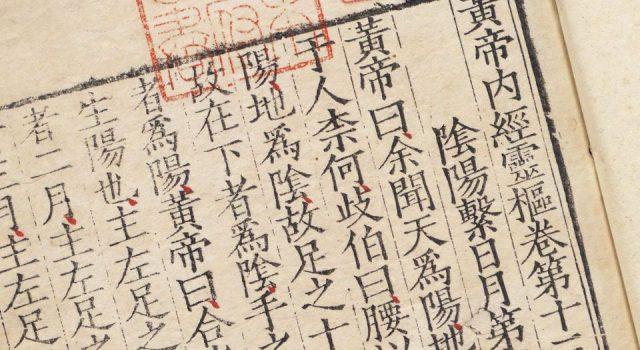 黃帝内經靈樞卷第十
陰陽繫日月第
黃帝曰余聞天爲陽地
于人柰何歧伯曰腰以
陽地爲陰故足之十
故在下者爲陰手之
者爲陽黃帝曰合
生陽也主左足之
者二月主左足
月主左足